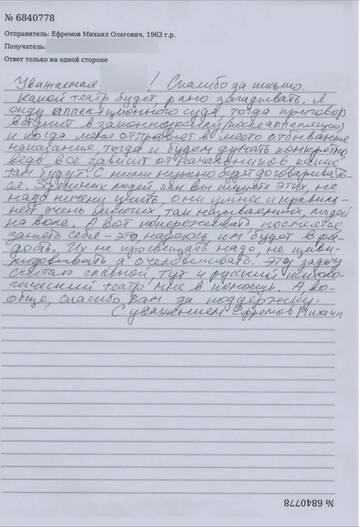 № 6840778
Отправитель: Ефремов Михаил Олегович, 1963 г.р.
Получатель:
Ответ только на одной стороне
Уважаемая ! Спасибо за письмо.
Какой театр будет рано загадывать, я
жду аппеляционного суда, тогда приговор
вступит в законную силу (после аппеляции)
и когда меня отправят в место отбывания
наказания, тогда и будем думать конкретно
ведь всё зависит от начальников какие
там будут. С ними нужно будет договаривать-
ся. Здешних людей, как вы пишите этих, не
надо ничему учить, они умнее и
ней очень многих, так называемых, людей
на воле. А вот попереживать постараться
занять себя - это хорошо им будет в ра-
дость. Их не просвещать надо, не
а очеловечивать. Эту задачу
считаю главной тут и русский психоло-
гический театр мне в помощь. А во-
обще, спасибо вам за поддержку.
С уважением Ефремов Михаил
№ 6840778